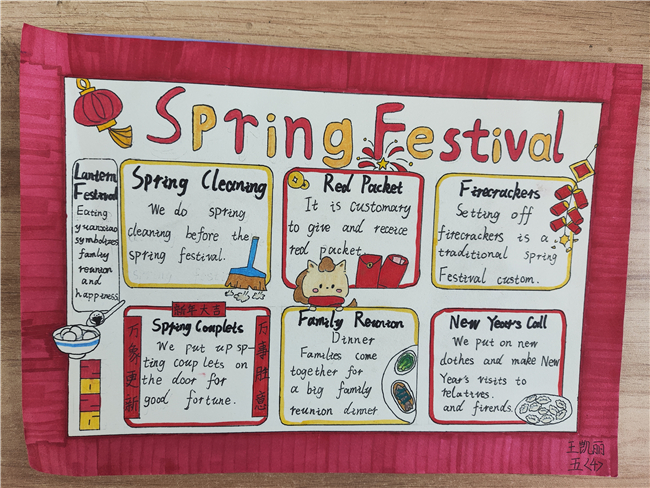 Spring Festival
Lantern
Festival
Eating
yuanxiao
symbolizes
family
reunion
and
happiness
Spring Cleaning
We do spring
cleaning before the
spring festival.
Red Packet
It is customary
to give and receice
red packet
Firecrackers
Setting off
firecrackers is a
traditional spring
Festival custom.
新年大吉
万象更新
Spring Couplets
We put up sp-
ting couplets on
the door for
good fortune.
万事胜意
Family Reunion
Dinner
Families come
together for
a big family
reunion dinner
New Year's Call
We put on new
clothes and make New
Year's visits to
relatives.
and firends.
王凯丽
五<4>